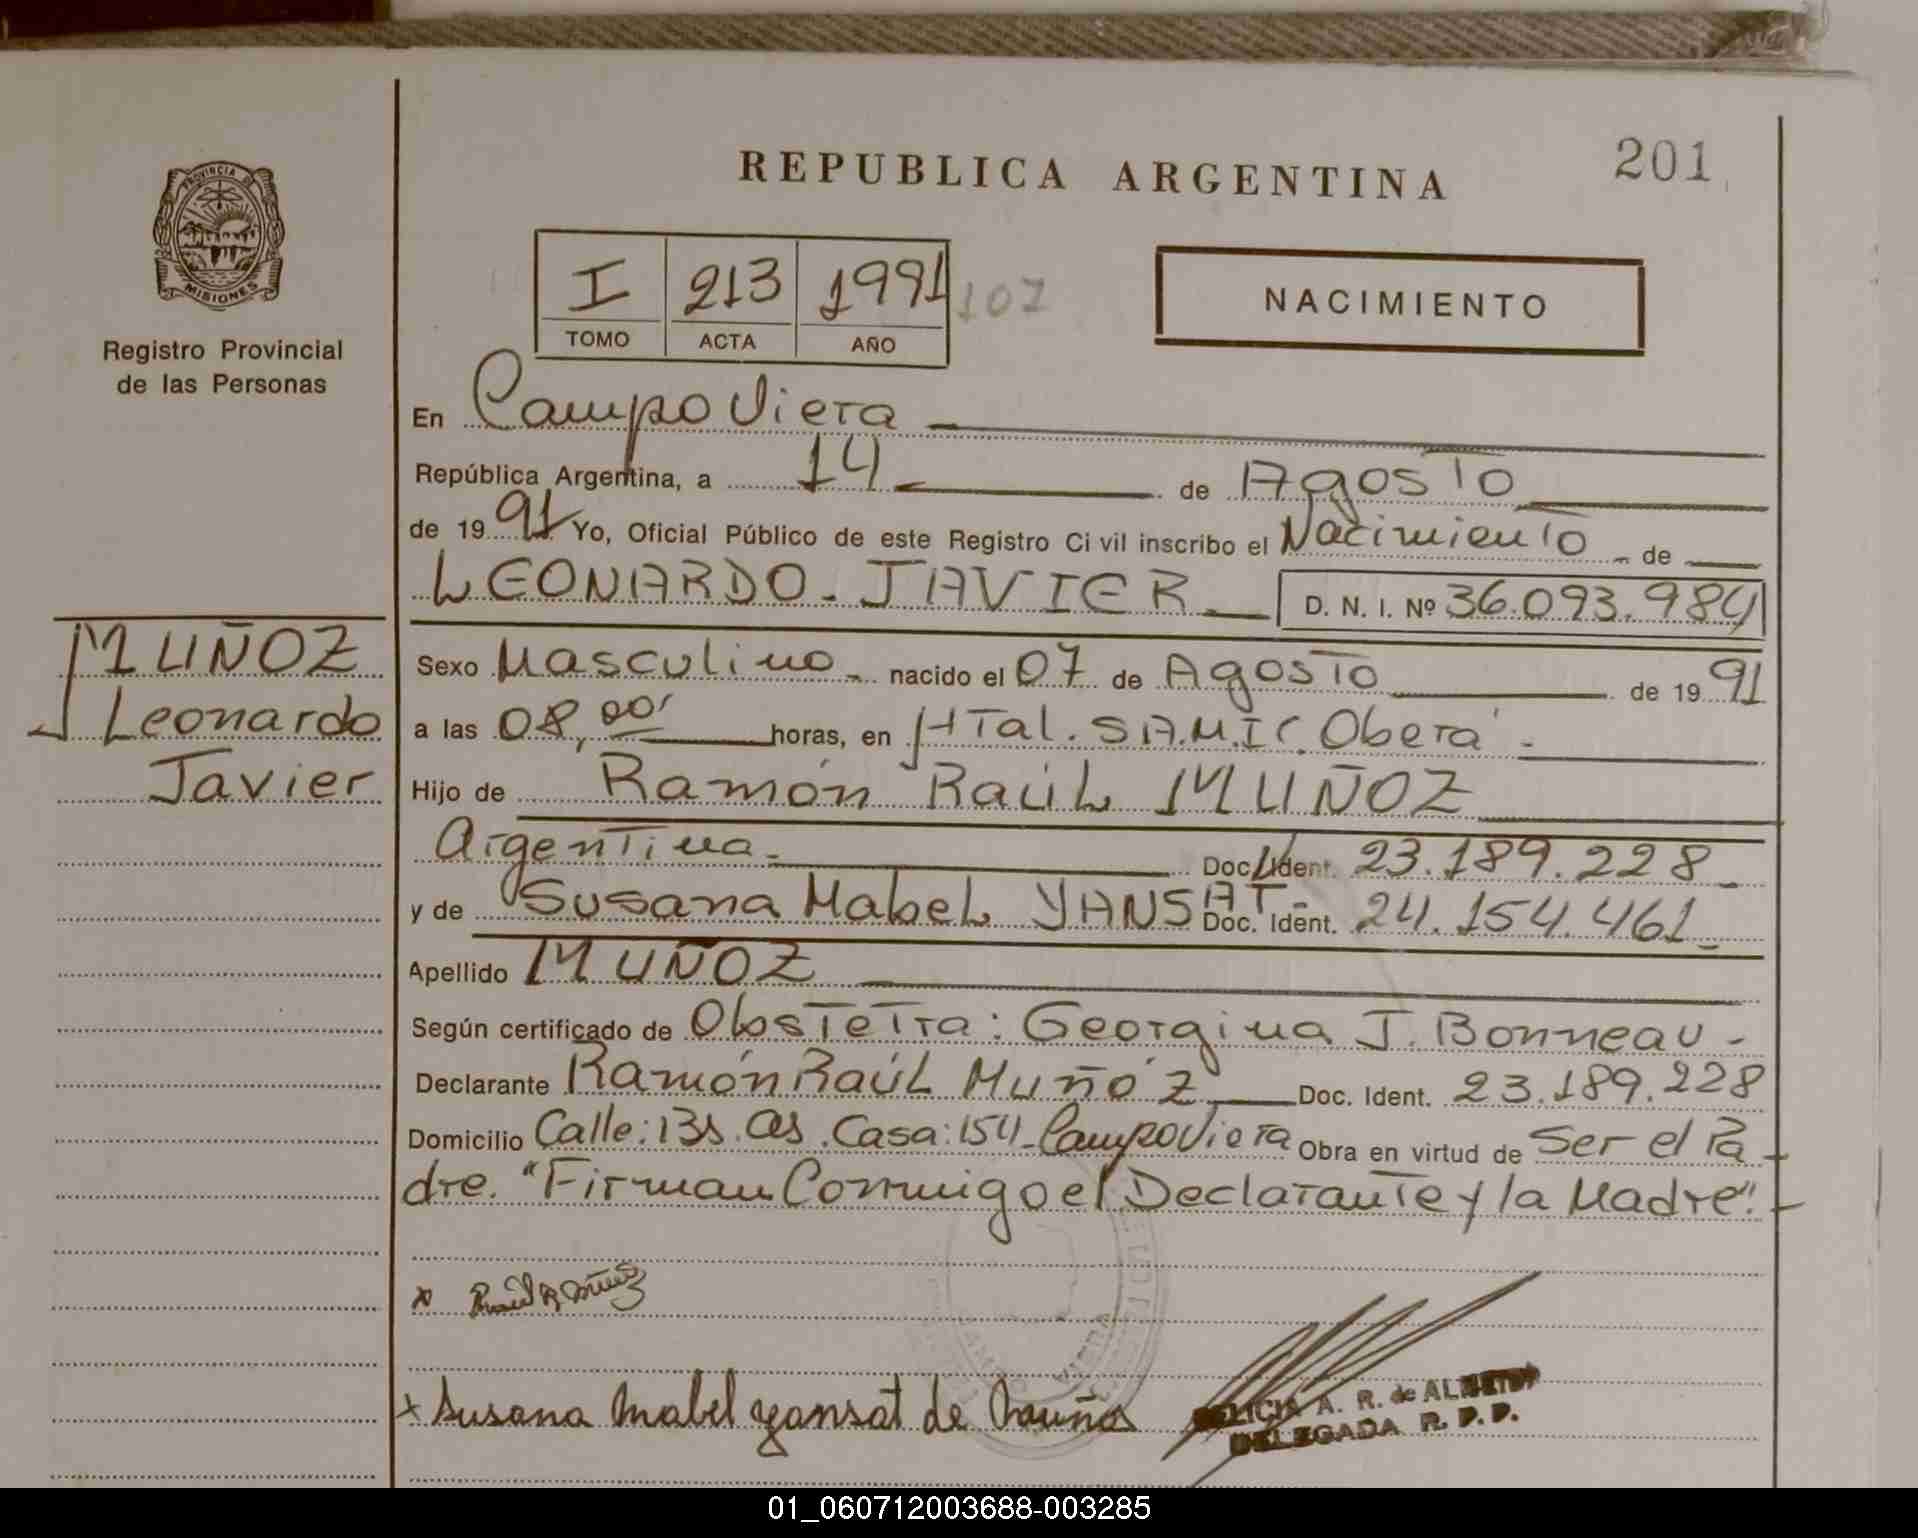 REPUBLICA ARGENTINA
201
PROVINCIA DE
MISIONES
Registro Provincial
de las Personas
I 213 1991 107
TOMO ACTA AÑO
NACIMIENTO
En Campo Viera
República Argentina, a 14 de Agosto
de 1991 Yo, Oficial Público de este Registro Civil inscribo el Nacimiento de
LEONARDO - JAVIER D. N. I. Nº 36.093.984
MUÑOZ
Leonardo
Javier
Sexo Masculino - nacido el 07 de Agosto de 1991
a las 08,00' horas, en HTal. S.A.M.I.C. Oberá -
Hijo de Ramón Raúl MUÑOZ
Argentina - Doc. Ident. 23.189.228 -
y de Susana Mabel YANSAT - Doc. Ident. 24.154.461 -
Apellido MUÑOZ
Según certificado de Obstetra: Georgina J. Bonneau -
Declarante Ramón Raúl Muñoz Doc. Ident. 23.189.228
Domicilio Calle: Bs. As. Casa: 154 - Campo Viera Obra en virtud de Ser el Pa-
dre. "Firman Conmigo el Declarante y la Madre". -
x
x Susana Mabel Yansat de Muñoz
FELICIA A. R. de
DELEGADA R. P. P.
VIERA
01_060712003688-003285